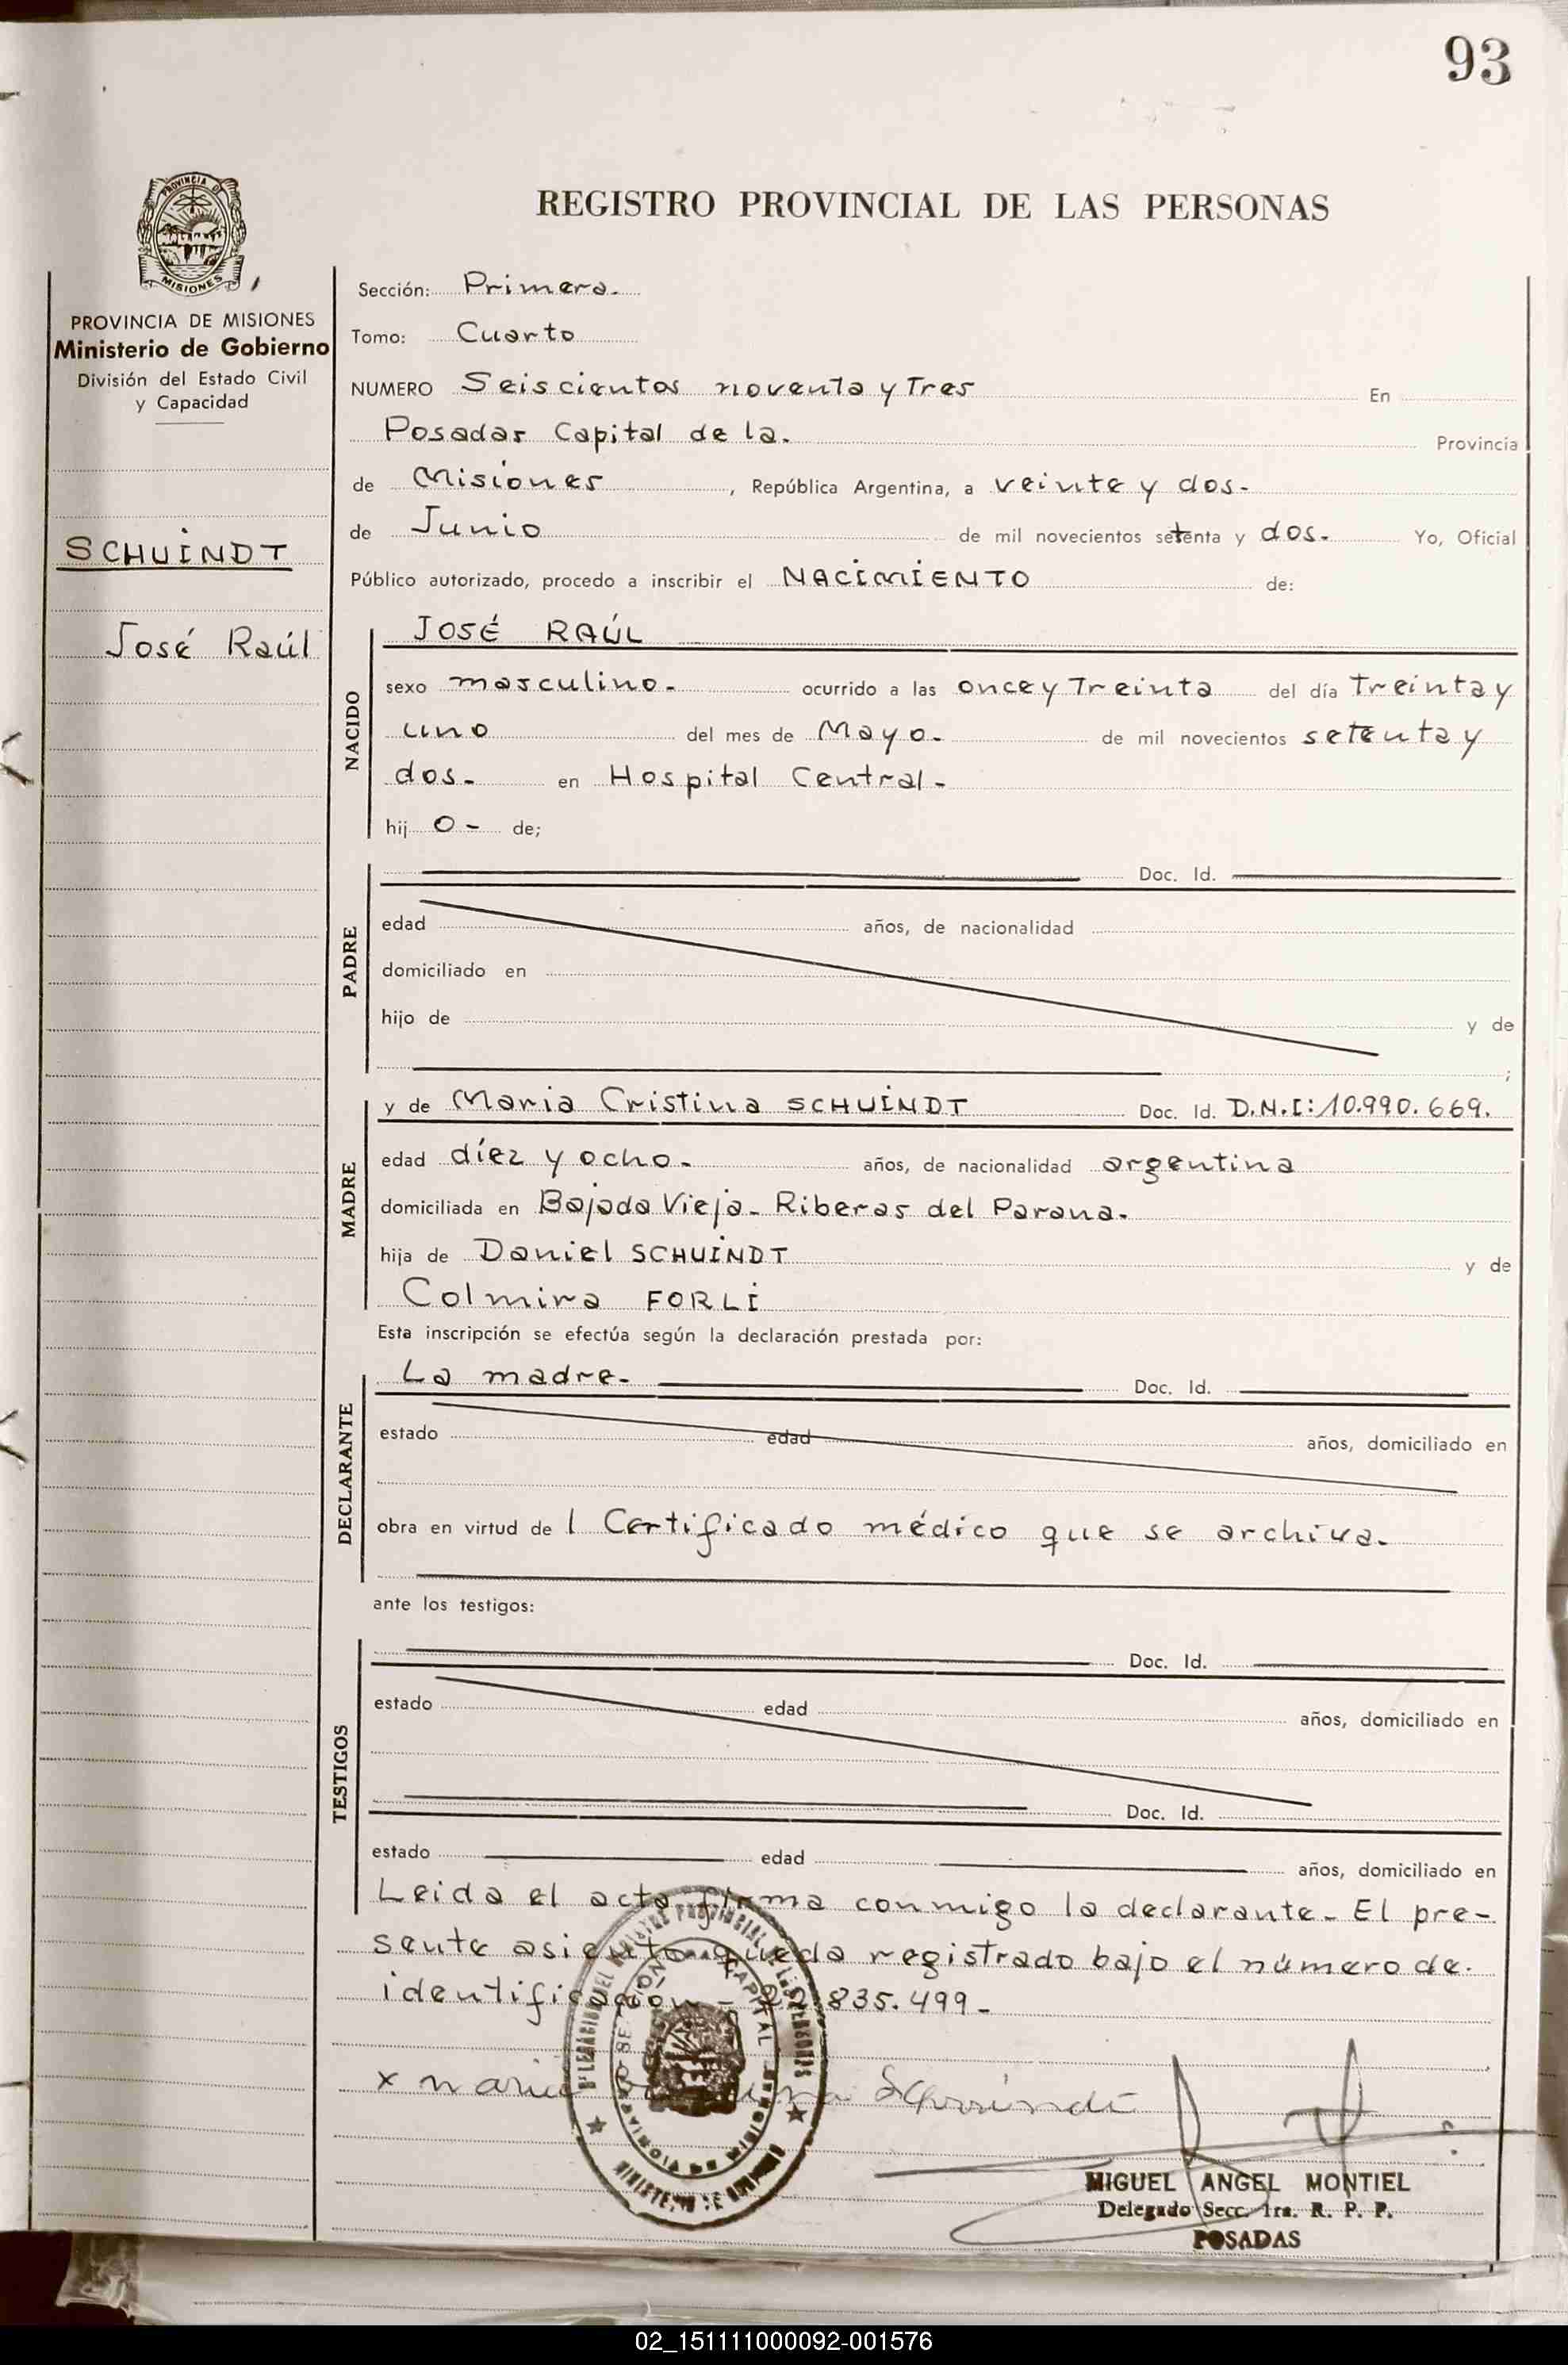 93
PROVINCIA DE
MISIONES
REGISTRO PROVINCIAL DE LAS PERSONAS
PROVINCIA DE MISIONES
Ministerio de Gobierno
División del Estado Civil
y Capacidad
SCHUINDT
José Raúl
Sección: Primera.
Tomo: Cuarto
NUMERO Seiscientos noventa y Tres En
Posadas Capital de la. Provincia
de Misiones, República Argentina, a veinte y dos.
de Junio de mil novecientos setenta y dos. Yo, Oficial
Público autorizado, procedo a inscribir el NACIMIENTO de:
NACIDO
JOSÉ RAÚL
sexo masculino. ocurrido a las once y Treinta del día Treinta y
uno del mes de Mayo. de mil novecientos setenta y
dos. en Hospital Central.
hijo- de;
PADRE
Doc. Id.
edad años, de nacionalidad
domiciliado en
hijo de y de
;
MADRE
y de Maria Cristina SCHUINDT Doc. Id. D.N.I: 10.990.669.
edad díez y ocho. años, de nacionalidad argentina
domiciliada en Bajada Vieja. Riberas del Parana.
hija de Daniel SCHUINDT y de
Colmira FORLI
Esta inscripción se efectúa según la declaración prestada por:
DECLARANTE
La madre. Doc. Id.
estado edad años, domiciliado en
obra en virtud de l Certificado médico que se archiva.
ante los testigos:
TESTIGOS
Doc. Id.
estado edad años, domiciliado en
Doc. Id.
estado edad años, domiciliado en
Leida el acta firma conmigo la declarante. El pre-
sente asiento queda registrado bajo el número de.
identificación - 835.499-
x maria Schuindt
MIGUEL ANGEL MONTIEL
Delegado Secc. 1ra. R. P. P.
POSADAS
02_151111000092-001576